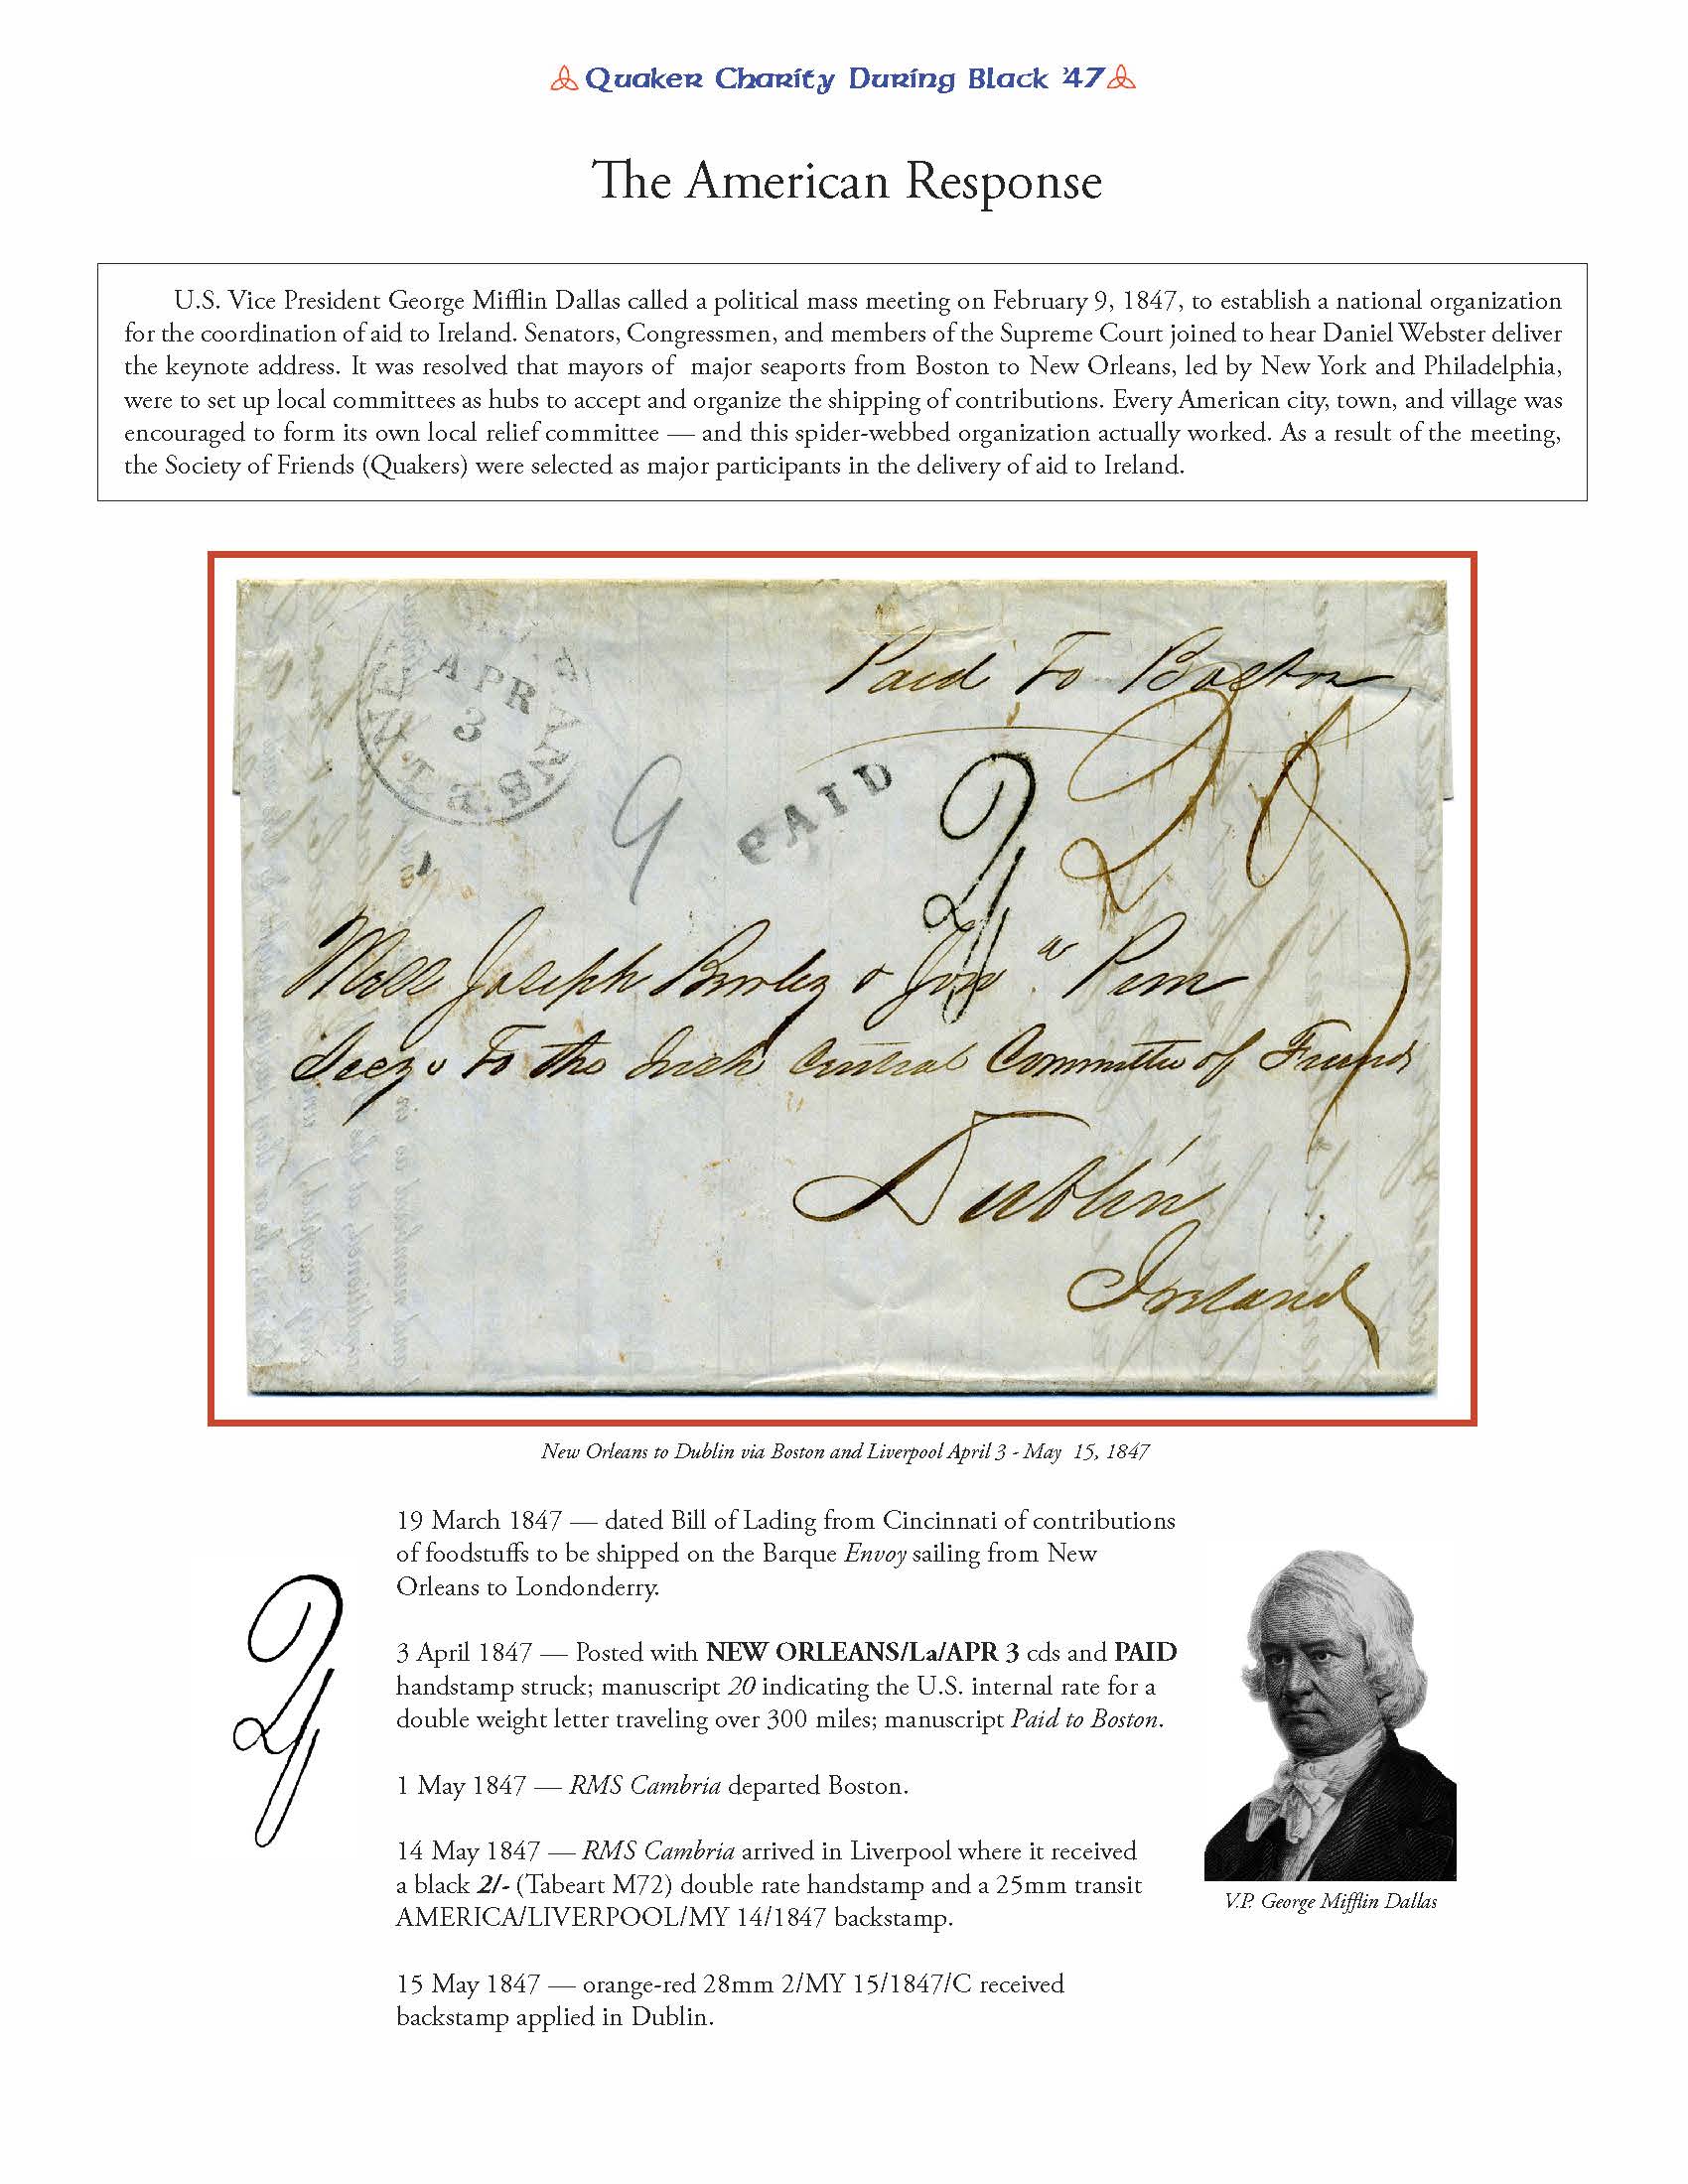 Quaker Charity During Black '47
The American Response
U.S. Vice President George Mifflin Dallas called a political mass meeting on February 9, 1847, to establish a national organization
for the coordination of aid to Ireland. Senators, Congressmen, and members of the Supreme Court joined to hear Daniel Webster deliver
the keynote address. It was resolved that mayors of major seaports from Boston to New Orleans, led by New York and Philadelphia,
were to set up local committees as hubs to accept and organize the shipping of contributions. Every American city, town, and village was
encouraged to form its own local relief committee — and this spider-webbed organization actually worked. As a result of the meeting,
the Society of Friends (Quakers) were selected as major participants in the delivery of aid to Ireland.
Paid To Boston
APR
3
9
PAID
2/-
20
Joseph Bewley & Jonn Pim
Secys To the Irish Central Committee of Friends
Dublin
Ireland
New Orleans to Dublin via Boston and Liverpool April 3 - May 15, 1847
19 March 1847 — dated Bill of Lading from Cincinnati of contributions
of foodstuffs to be shipped on the Barque Envoy sailing from New
Orleans to Londonderry.
3 April 1847 — Posted with NEW ORLEANS/La/APR 3 cds and PAID
handstamp struck; manuscript 20 indicating the U.S. internal rate for a
double weight letter traveling over 300 miles; manuscript Paid to Boston.
1 May 1847 — RMS Cambria departed Boston.
14 May 1847 — RMS Cambria arrived in Liverpool where it received
a black 2/- (Tabeart M72) double rate handstamp and a 25mm transit
AMERICA/LIVERPOOL/MY 14/1847 backstamp.
15 May 1847 — orange-red 28mm 2/MY 15/1847/C received
backstamp applied in Dublin.
2/-
V.P. George Mifflin Dallas